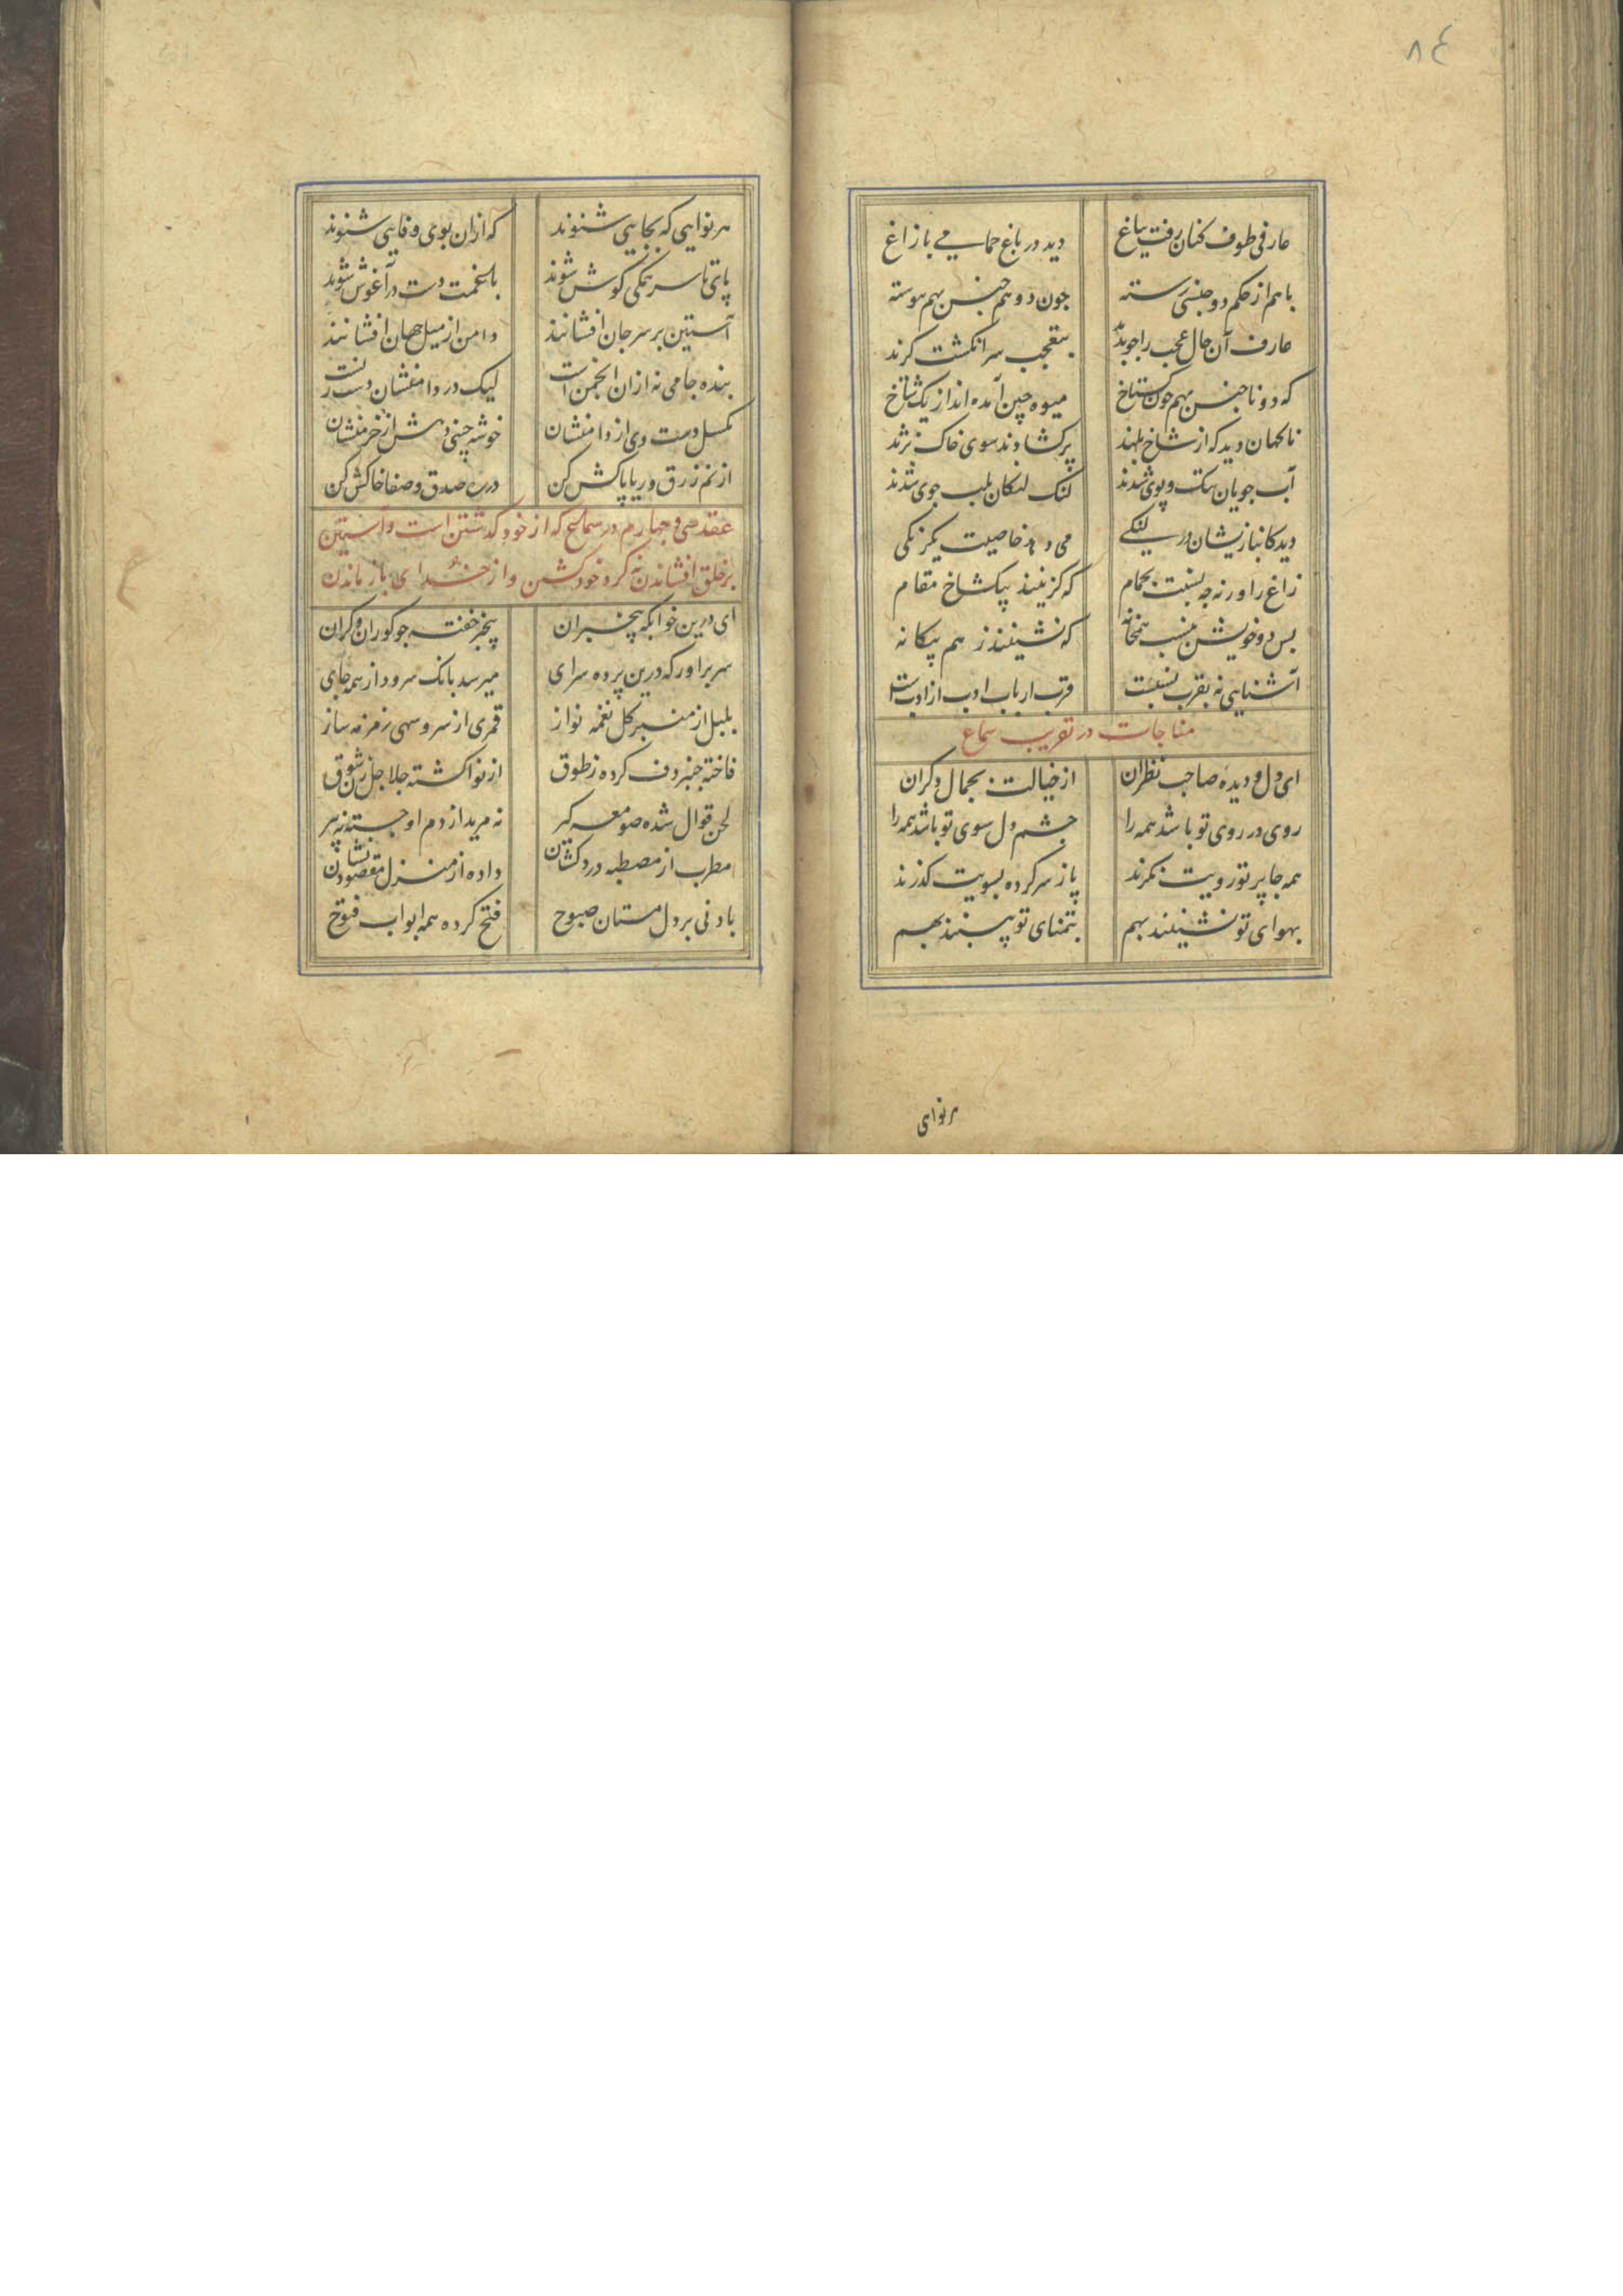 ٨٤
عارفی طوف کنان رفت بباغ دید در باغ حمامی با زاغ
با هم از حکم دو جنسی رسته چون دو هم جنس بهم پیوسته
عارف آن حال عجب را چو بدید بتعجب سر انکشت کزید
که دو ناجنس بهم چون کستاخ میوه چین آمده اند از یک شاخ
ناکهان دید که از شاخ بلند پر کشادند سوی خاک نژند
آب جویان بتک و پوی شدند لنک لنکان بلب جوی شدند
دید کانبازیشان در لنکی می دهد خاصیت یکرنکی
زاغ را ورنه چه نسبت بحمام که کزینند بیکشاخ مقام
بس دو خویش بنسب همخانه که نشینند ز هم بیکانه
آشنایی نه بقرب نسبست قرب ارباب ادب از ادبست
مناجات در تقریب سماع
ای دل و دیده صاحب نظران از خیالت بجمال دکران
روی در روی تو باشد همه را چشم دل سوی تو باشد همه را
همه جا پرتو رویت نکرند پا ز سر کرده بسویت کذرند
بهوای تو نشینند بهم بتمنای تو بینند بهم
هر نوای
هر نوایی که بجایی شنوند که ازان بوی وفایی شنوند
پای تا سر همکی کوش شوند با غمت دست در آغوش شوند
آستین بر سر جان افشانند دامن از میل جهان افشانند
بنده جامی نه ازان انجمن است لیک در دامنشان دست زنست
مکسل دست وی از دامنشان خوشه چینی دهش از خرمنشان
از نم زرق و ریا پاکش کن در ره صدق و صفا خاکش کن
عقد سی و چهارم در سماع که از خود کذشتن است و آستین
بر خلق افشاندن نه کرد خود کشتن و از خدای باز ماندن
ای درین خوابکه بیخبران بیخبر خفته چو کوران و کران
سر برآور که درین پرده سرای میرسد بانک سرود از همه جای
بلبل از منبر کل نغمه نواز قمری از سرو سهی زمزمه ساز
فاخته چنبر دف کرده ز طوق از نوا کشته جلاجل زن شوق
لحن قوال شده صومعه کیر نه مرید از دم او جسته نه پیر
مطرب از مصطبه دردکشان داده از منزل مقصود نشان
باد نی بر دل مستان صبوح فتح کرده همه ابواب فتوح